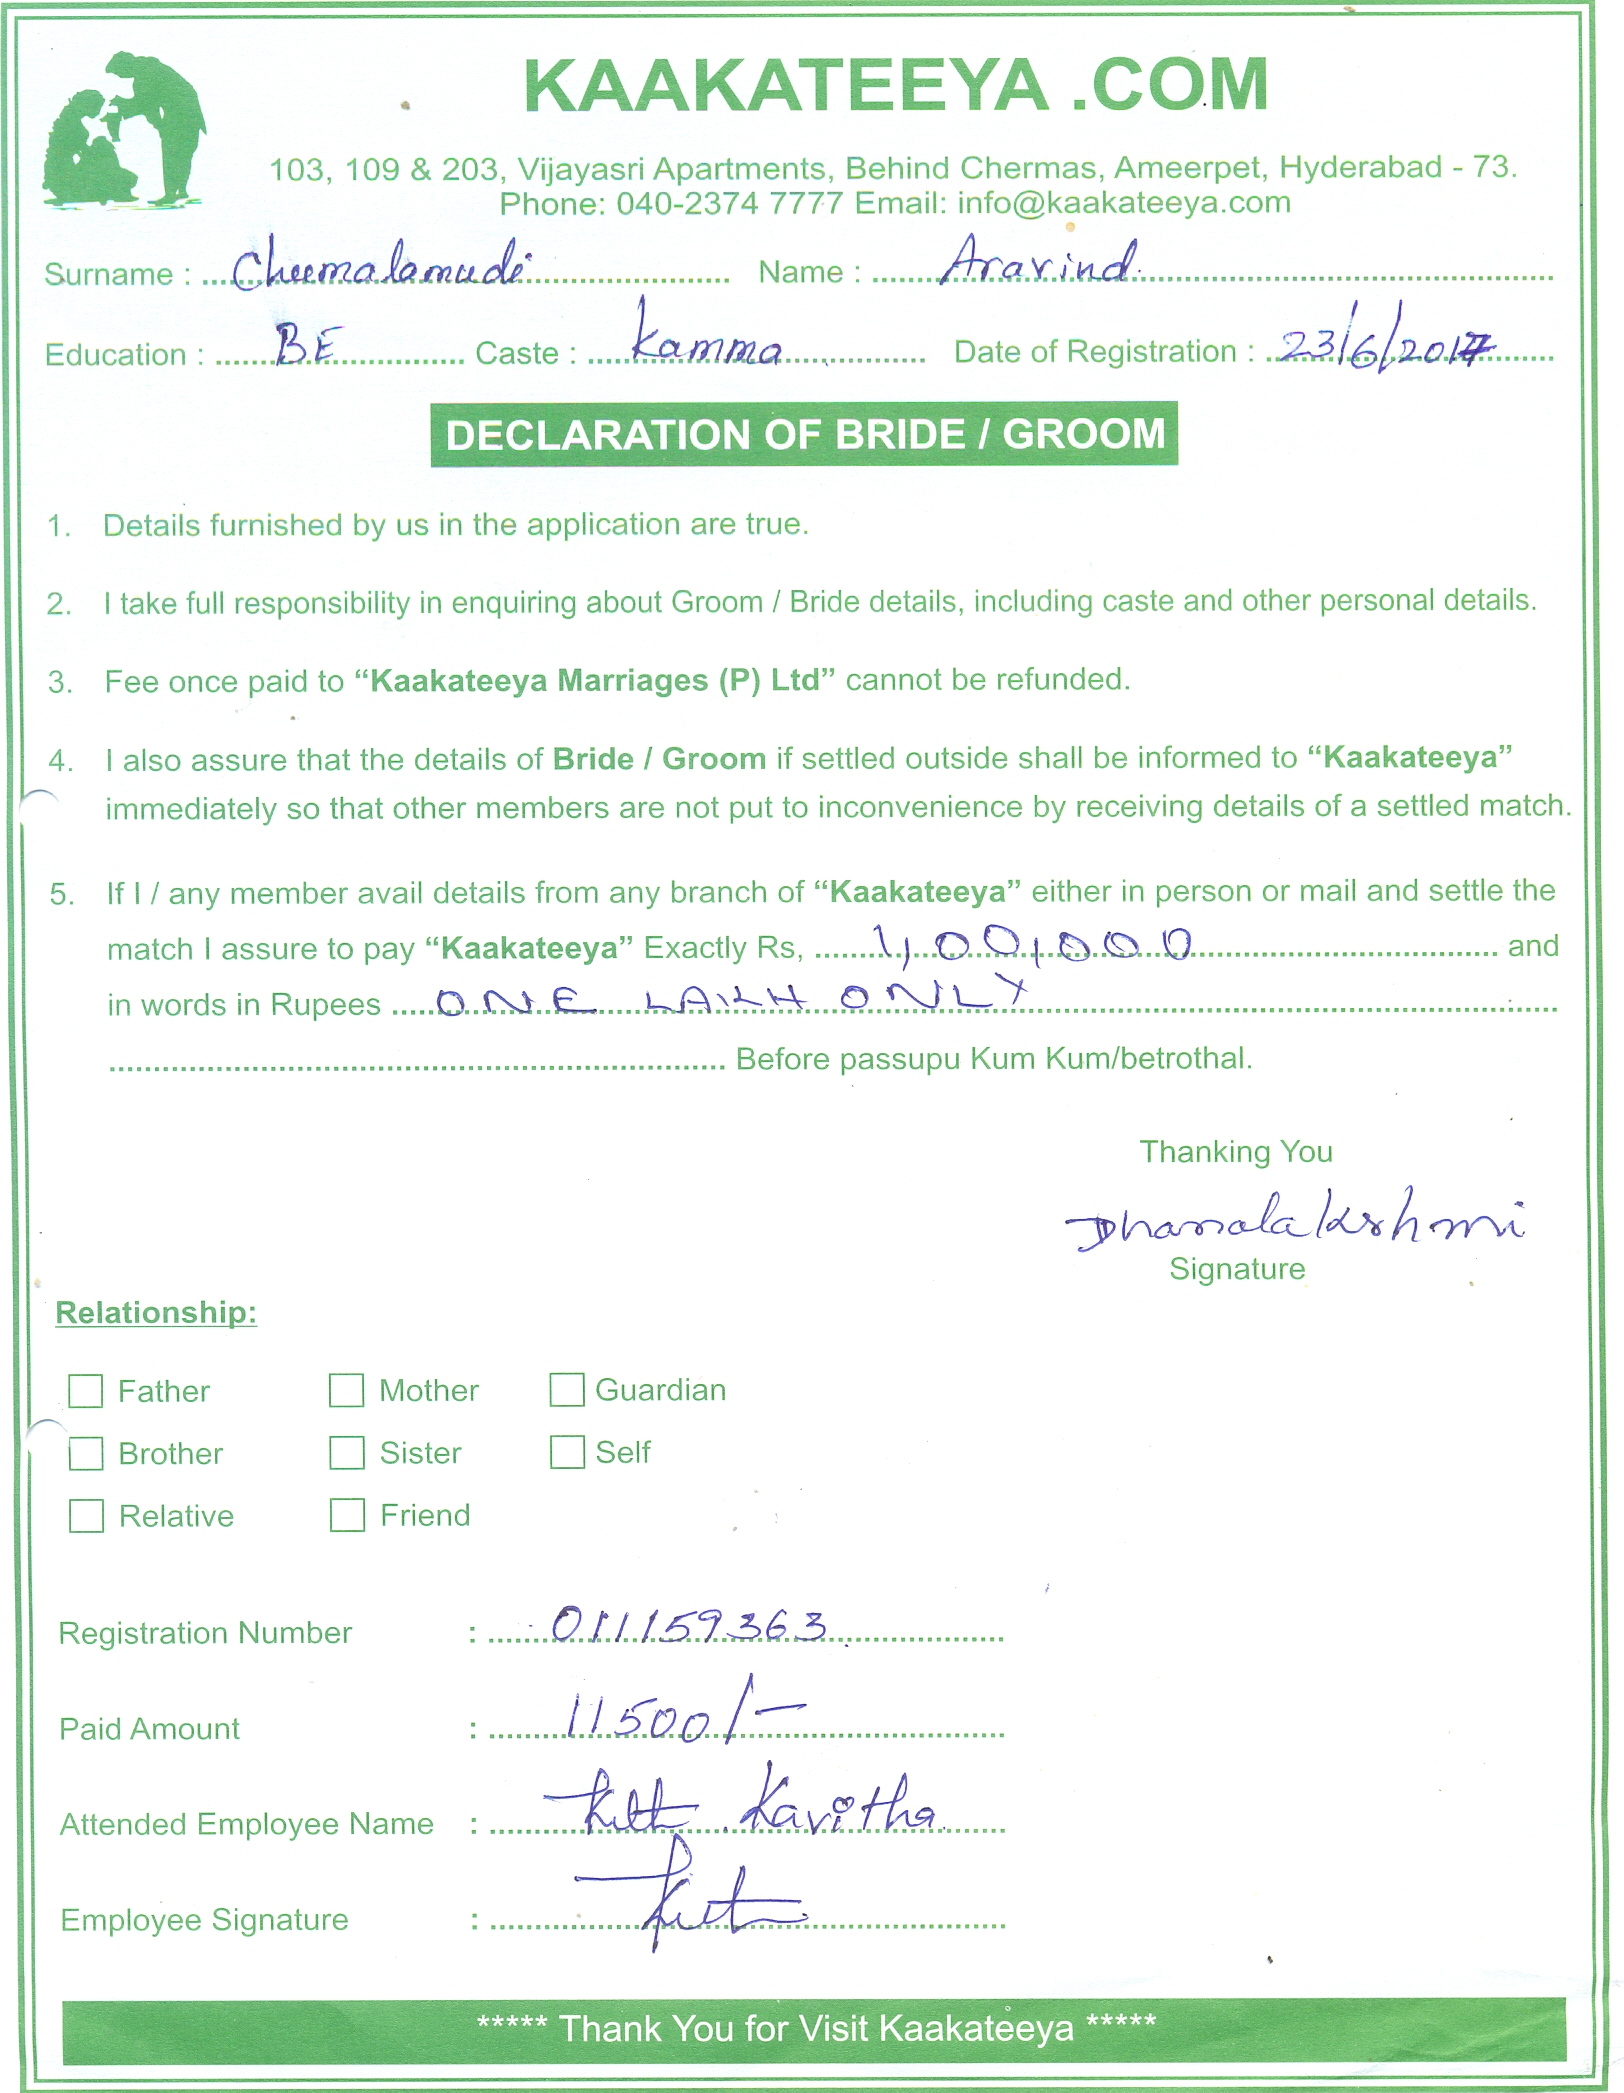 KAAKATEEYA .COM
103, 109 & 203, Vijayasri Apartments, Behind Chermas, Ameerpet, Hyderabad - 73.
Phone: 040-2374 7777 Email: info@kaakateeya.com
Surname : Cheemalamudi Name : Aravind.
Education : BE Caste : Kamma Date of Registration : 23/6/2017
DECLARATION OF BRIDE / GROOM
1. Details furnished by us in the application are true.
2. I take full responsibility in enquiring about Groom / Bride details, including caste and other personal details.
3. Fee once paid to “Kaakateeya Marriages (P) Ltd” cannot be refunded.
4. I also assure that the details of Bride / Groom if settled outside shall be informed to “Kaakateeya”
immediately so that other members are not put to inconvenience by receiving details of a settled match.
5. If I / any member avail details from any branch of “Kaakateeya” either in person or mail and settle the
match I assure to pay “Kaakateeya” Exactly Rs, 1,00,000 and
in words in Rupees ONE LAKH ONLY
Before passupu Kum Kum/betrothal.
Thanking You
Dhanalakshmi
Signature
Relationship:
Father Mother Guardian
Brother Sister Self
Relative Friend
Registration Number : 011159363
Paid Amount : 11500/-
Attended Employee Name : Kavitha
Employee Signature :
***** Thank You for Visit Kaakateeya *****